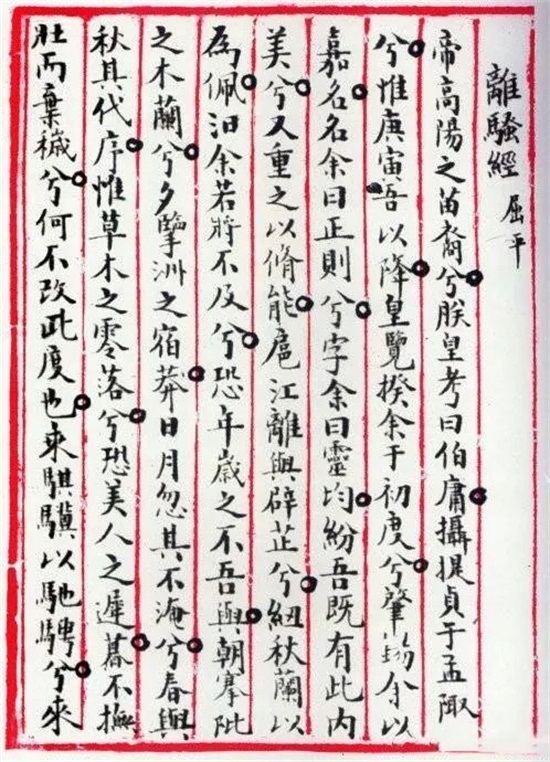 離騷經 屈平
帝高陽之苗裔兮朕皇考曰伯庸攝提貞于孟陬
兮惟庚寅吾以降皇覽揆余于初度兮肇錫余以
嘉名名余曰正則兮字余曰靈均紛吾既有此內
美兮又重之以脩能扈江離與辟芷兮紉秋蘭以
為佩汨余若將不及兮恐年歲之不吾與朝搴阰
之木蘭兮夕擥洲之宿莽日月忽其不淹兮春與
秋其代序惟草木之零落兮恐美人之遲暮不撫
壯而棄穢兮何不改此度也來騏驥以馳騁兮來